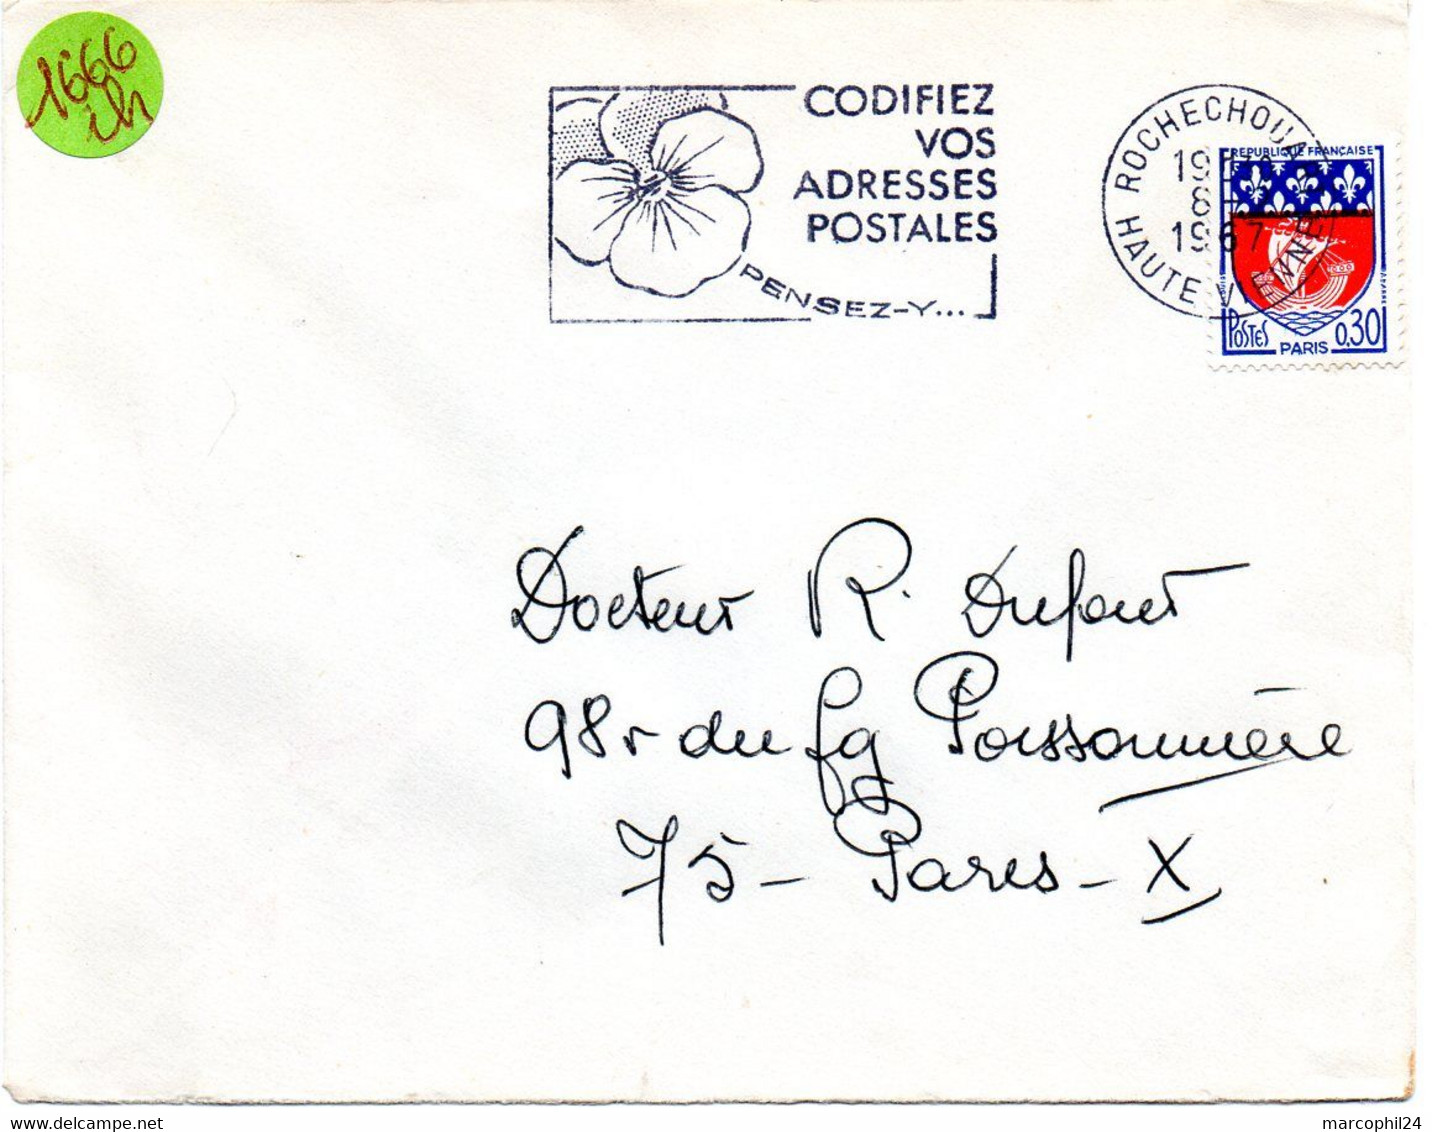 1666
ih
CODIFIEZ
VOS
ADRESSES
POSTALES
PENSEZ-Y...
ROCHECHOUART
HAUTE VIENNE
8
1967
REPUBLIQUE FRANÇAISE
POSTES
0,30
PARIS
Docteur R. Dufour
98 r du fg Poissonnière
75 - Paris - X
marcophil24